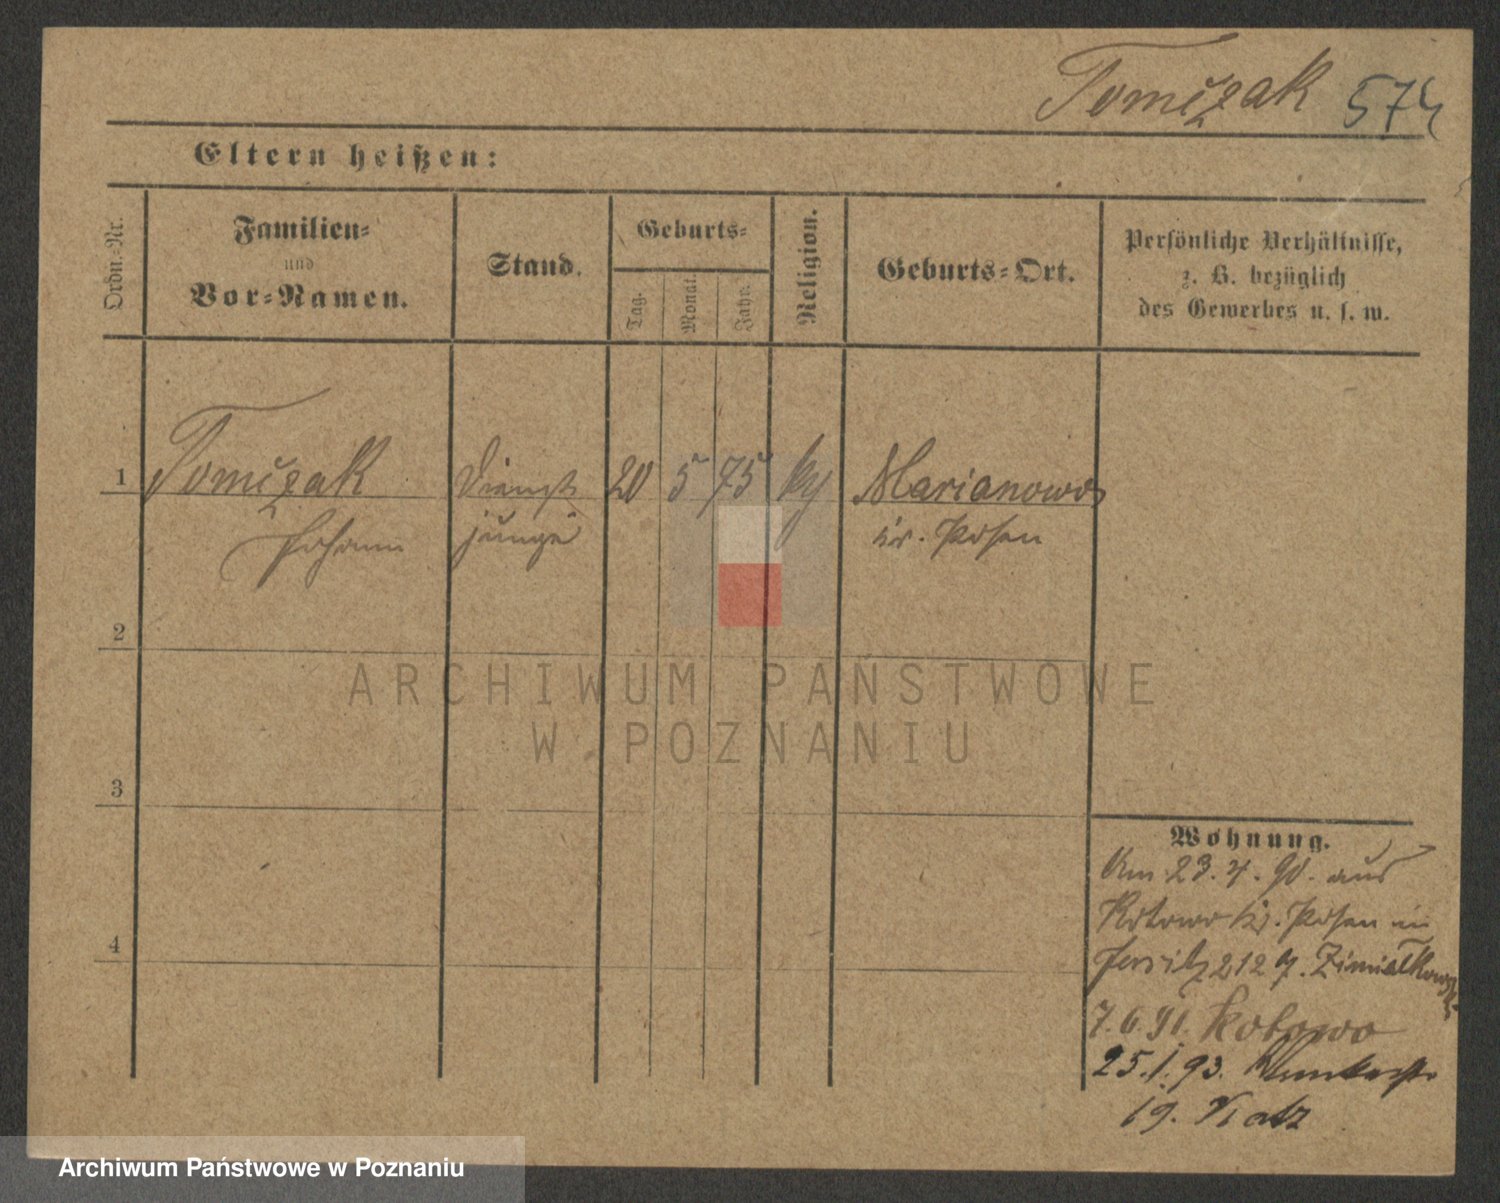 Tomczak 574
Eltern heißen:
Ordn.-Nr.
Familien-
und
Vor-Namen.
Stand.
Geburts-
Tag.
Monat.
Jahr.
Religion.
Geburts-Ort.
Persönliche Verhältnisse,
z. B. bezüglich
des Gewerbes u. s. w.
1 Tomczak Dienst 20 5 75 Marianowo
Johann junge Kr. Posen
2
ARCHIWUM PAŃSTWOWE
W POZNANIU
3
Wohnung.
Am 23.4.90. aus
Kotowo Kr. Posen in
4
Jersitz 212
7.6.91. Kotowo
25.1.93.
19.
Archiwum Państwowe w Poznaniu